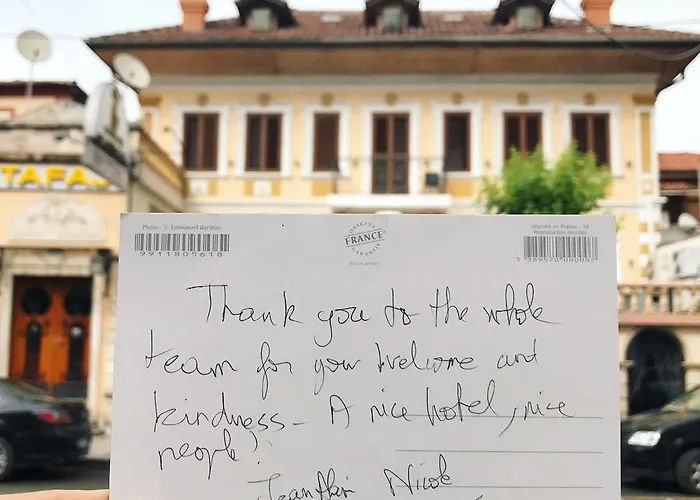 TAFAJ
Photo : © Emmanuel Berthier
9911805618
ORIGINE
FRANCE
GARANTIE
Imprimé en France - 15
Reproduction interdite
3 389570 000007
Thank you to the whole
team for your welcome and
kindness - A nice hotel, nice
people!
Nicole